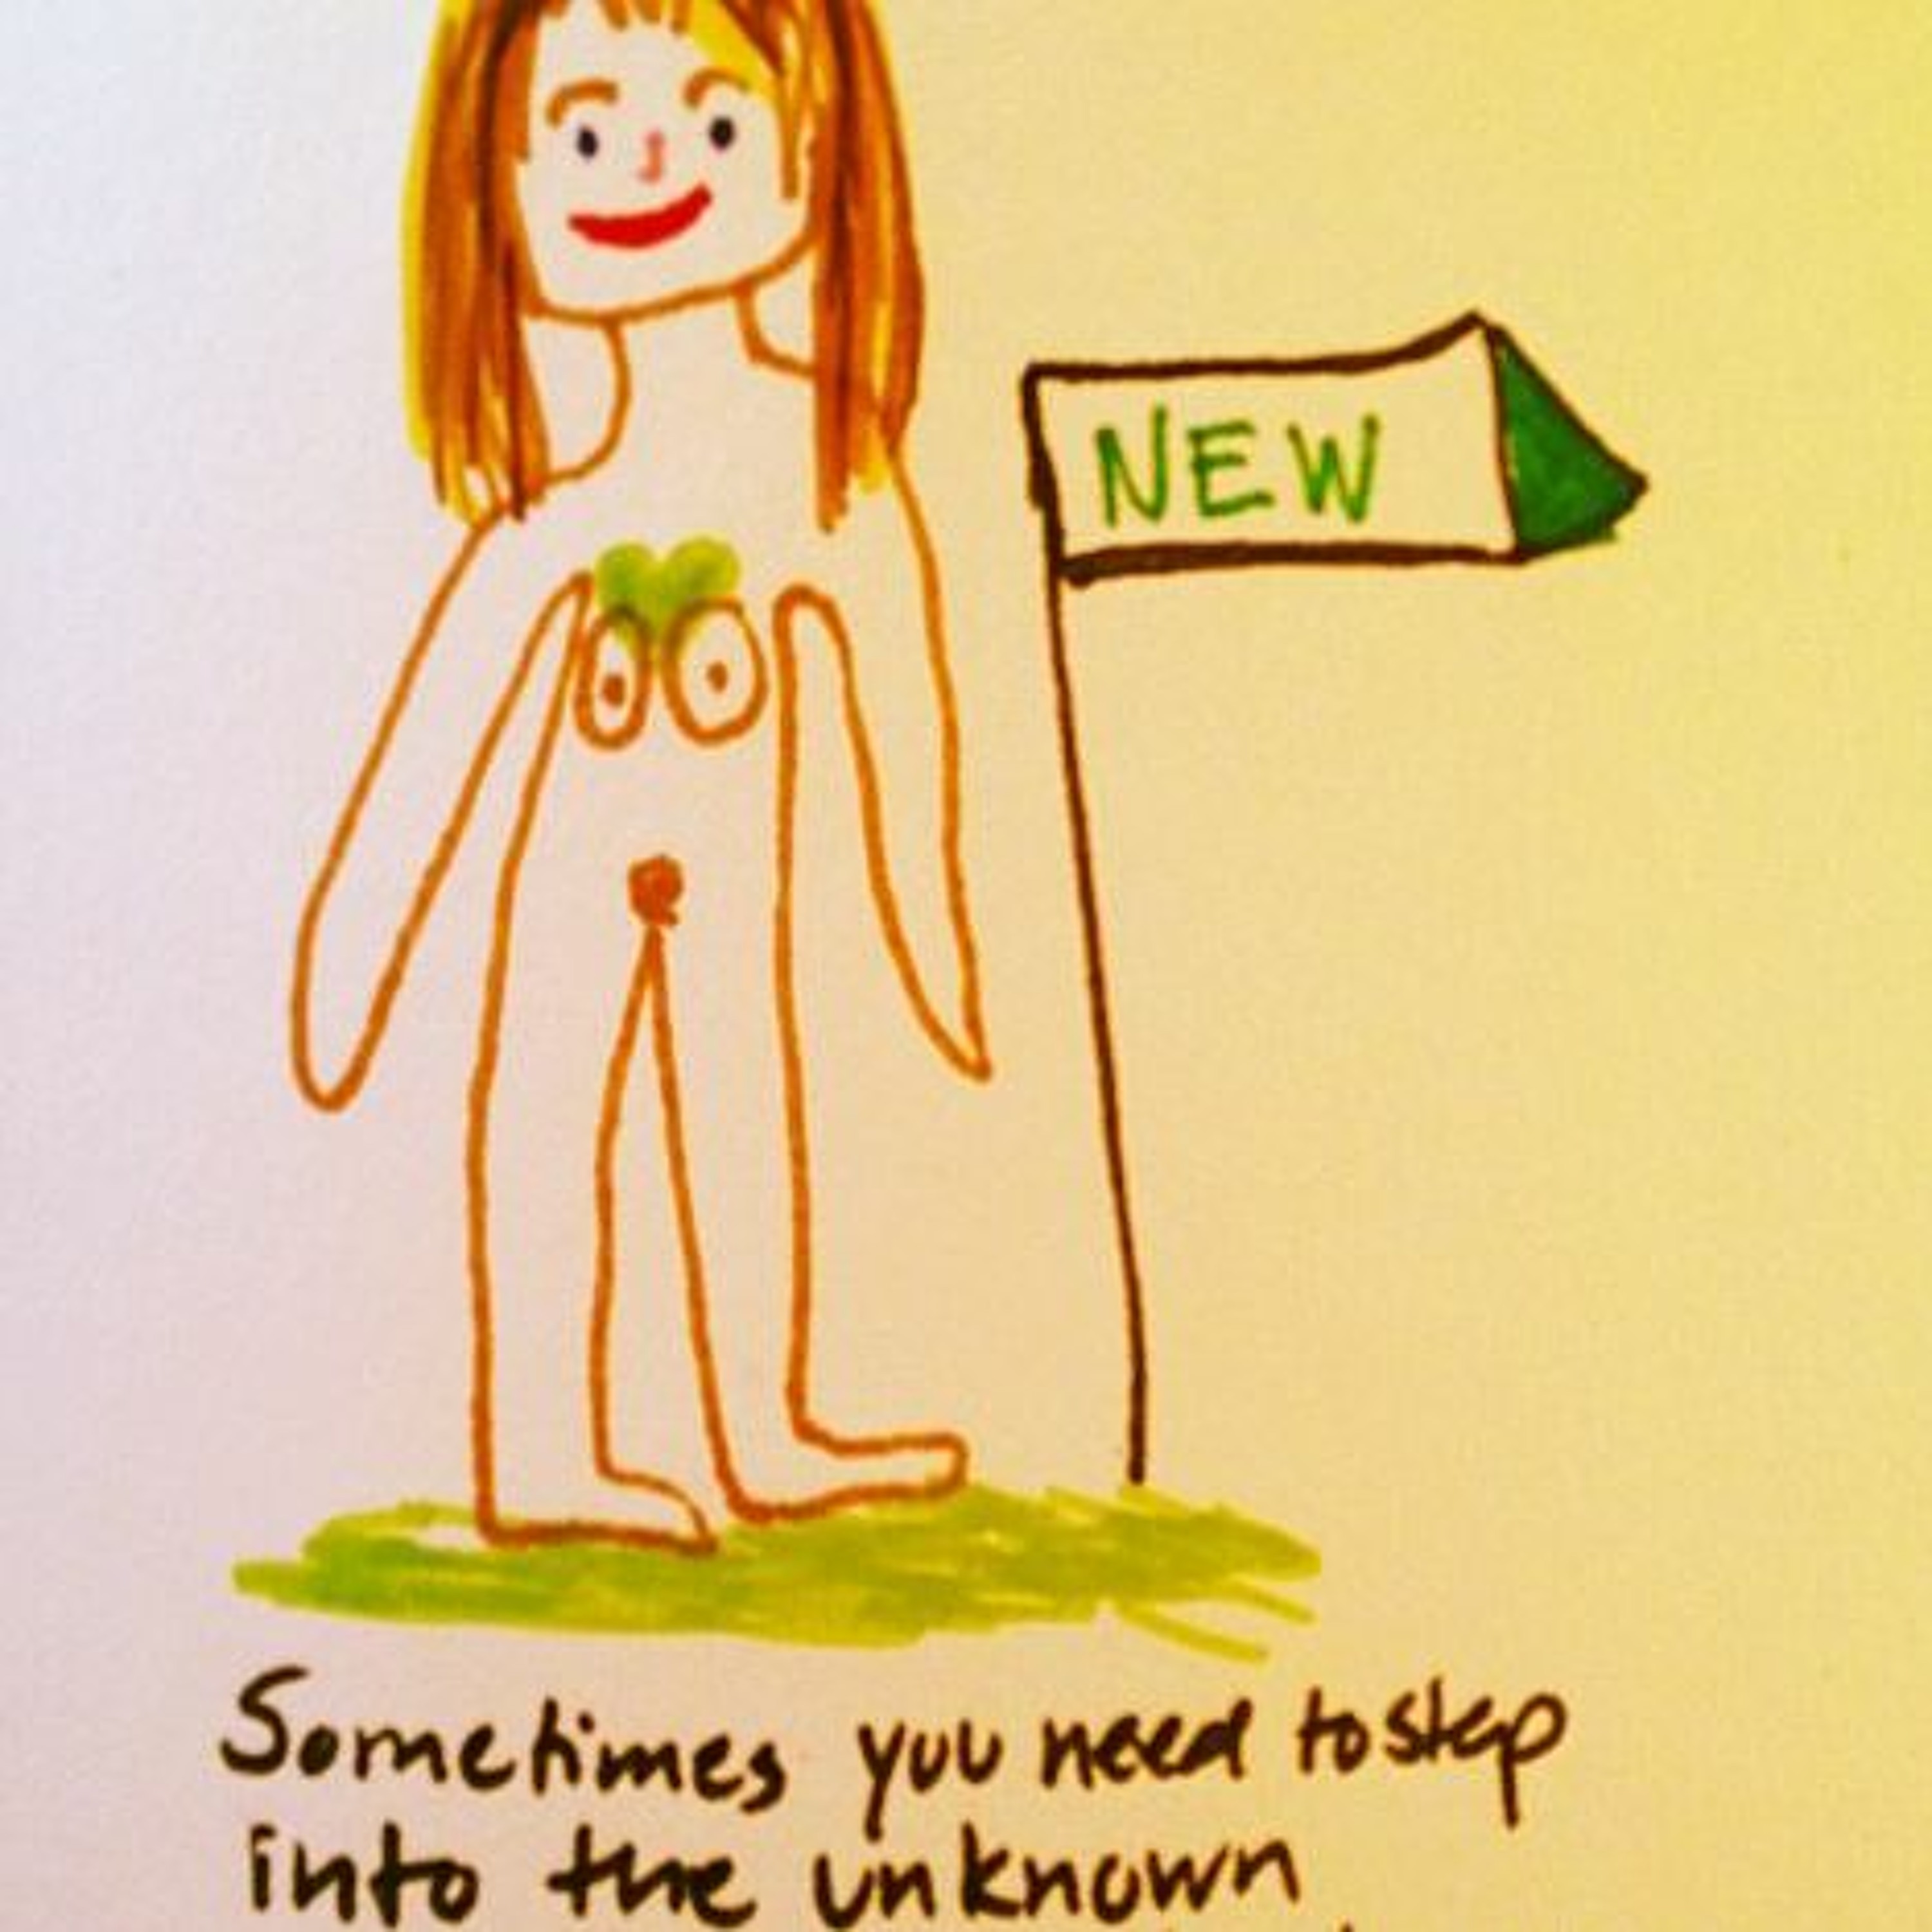 NEW
Sometimes you need to step
into the unknown